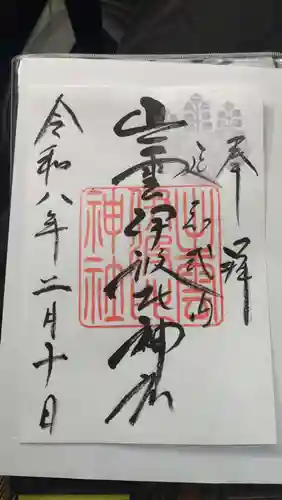 奉拝
延喜式内
出雲伊波比神社
令和八年二月十日
出雲
伊波比
神社